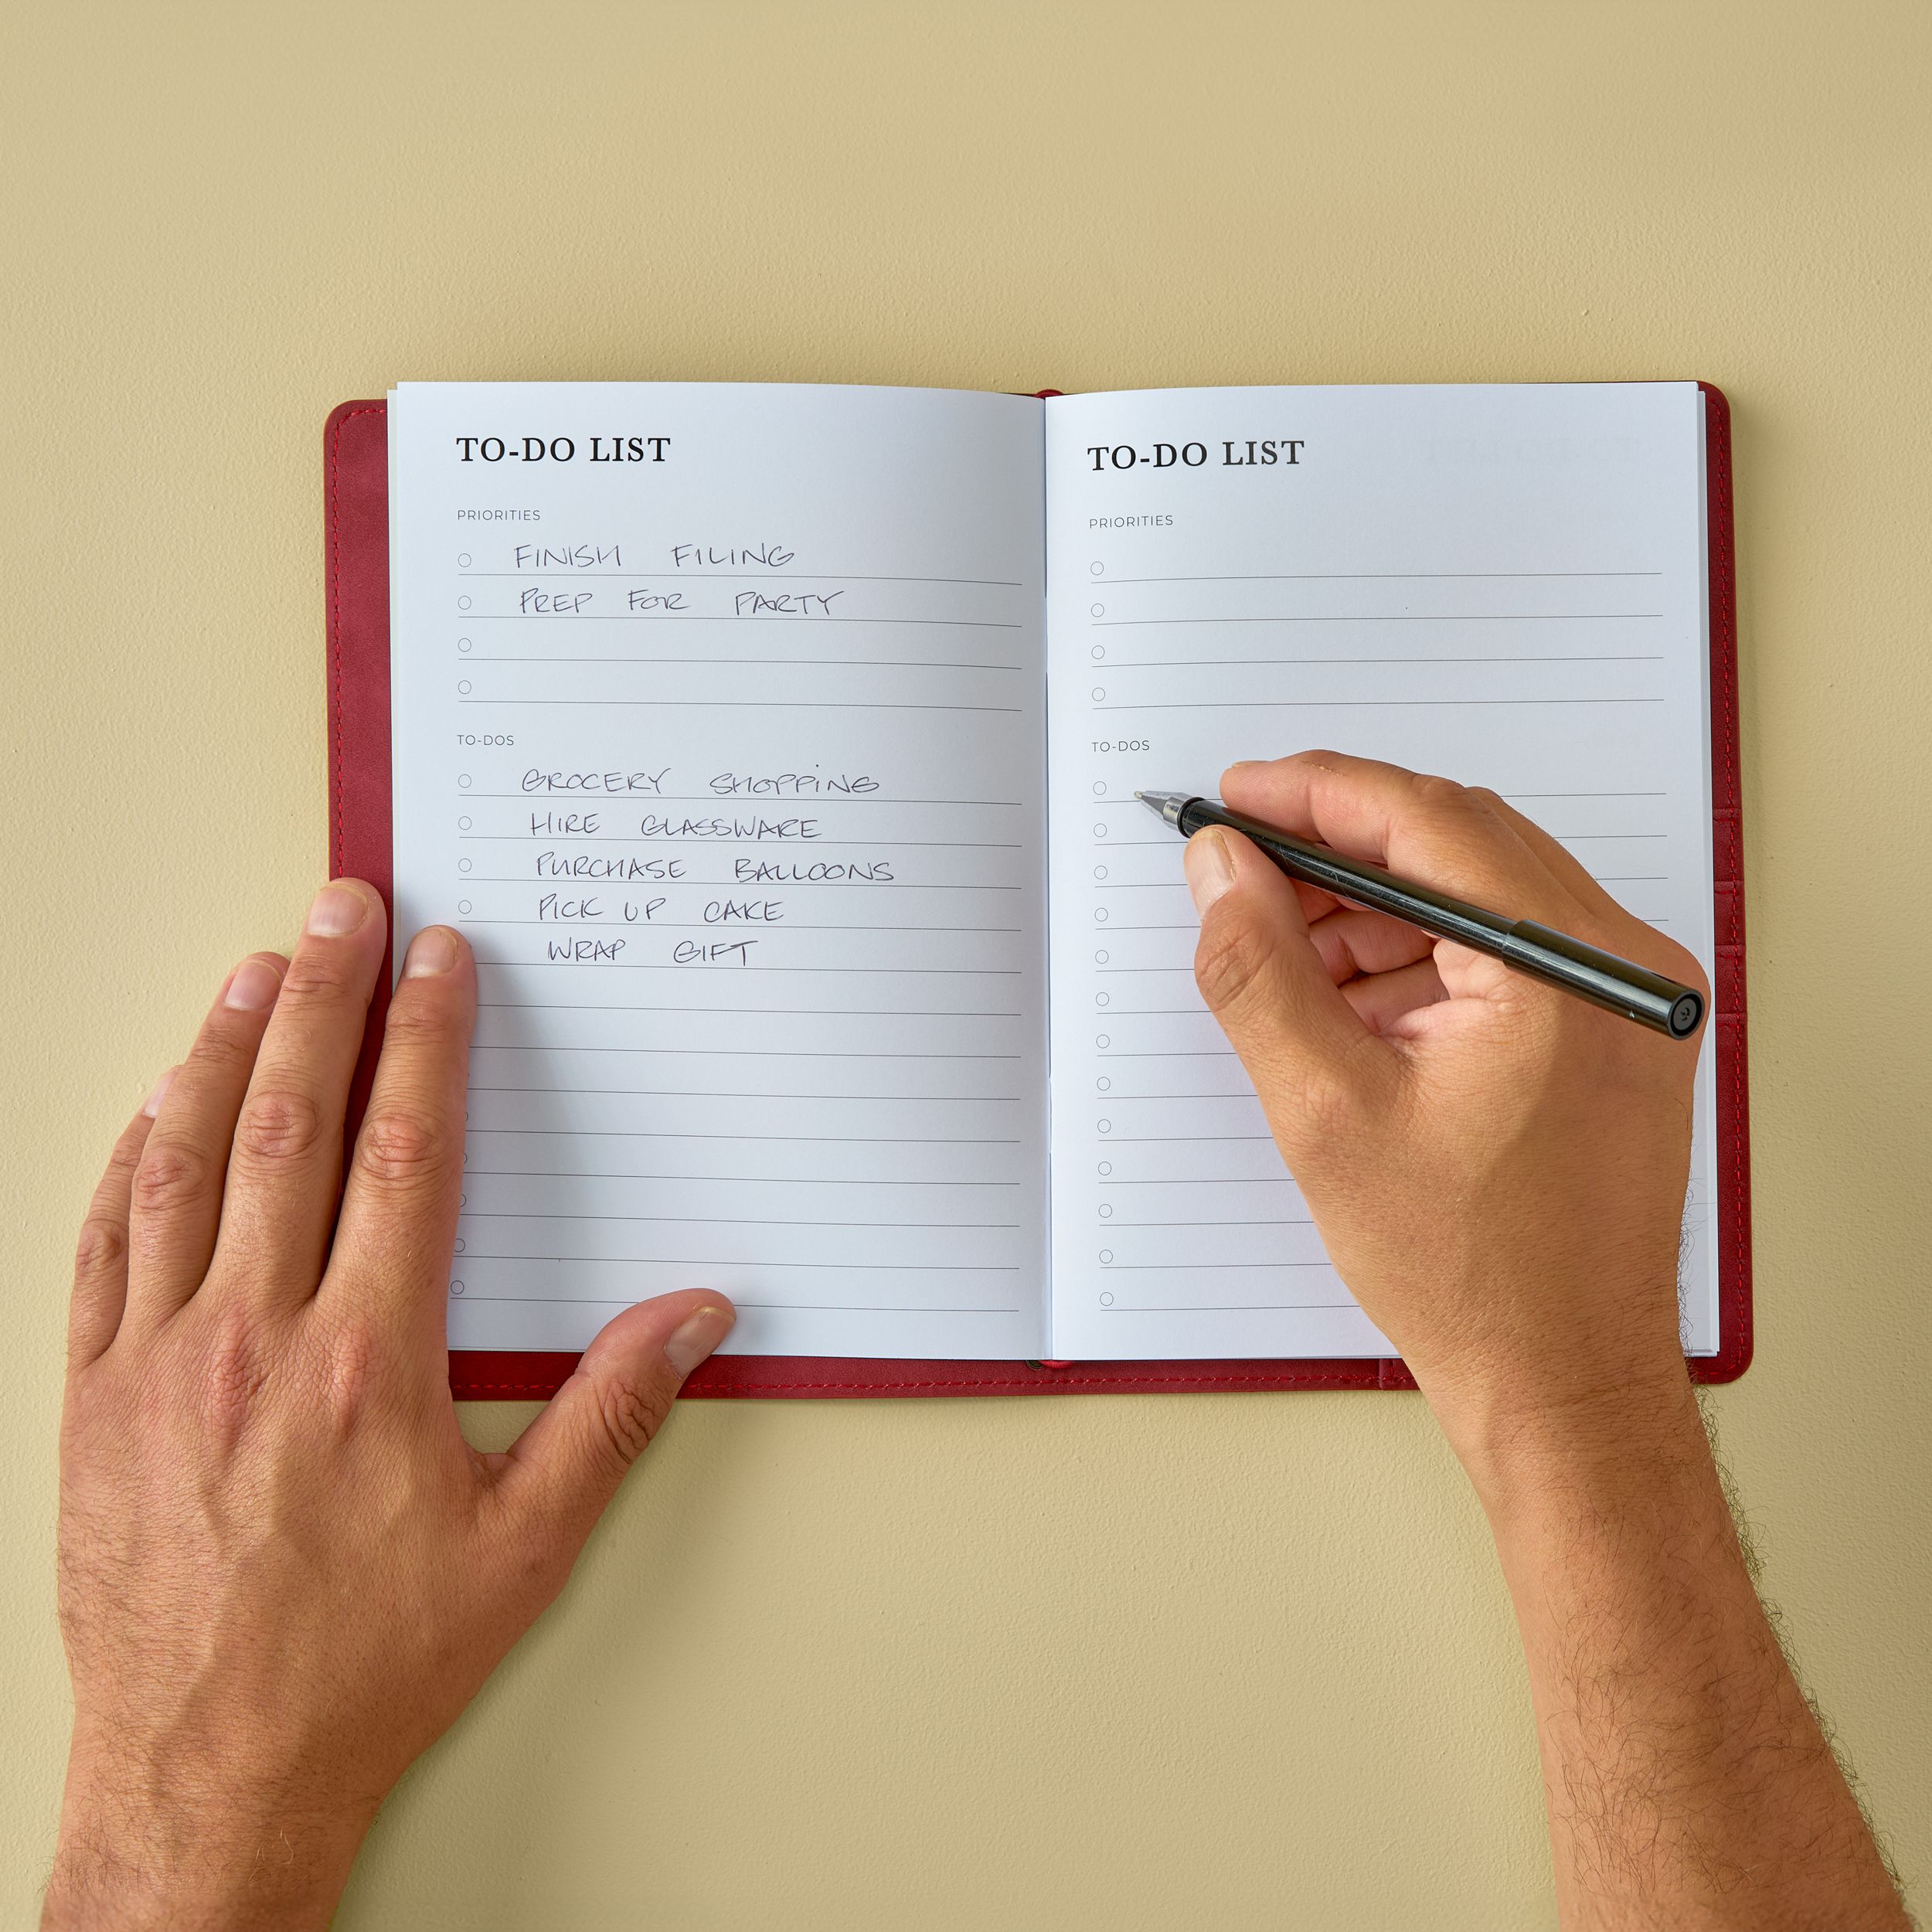 TO-DO LIST
PRIORITIES
FINISH FILING
PREP FOR PARTY
TO-DOS
GROCERY SHOPPING
HIRE GLASSWARE
PURCHASE BALLOONS
PICK UP CAKE
WRAP GIFT
TO-DO LIST
PRIORITIES
TO-DOS